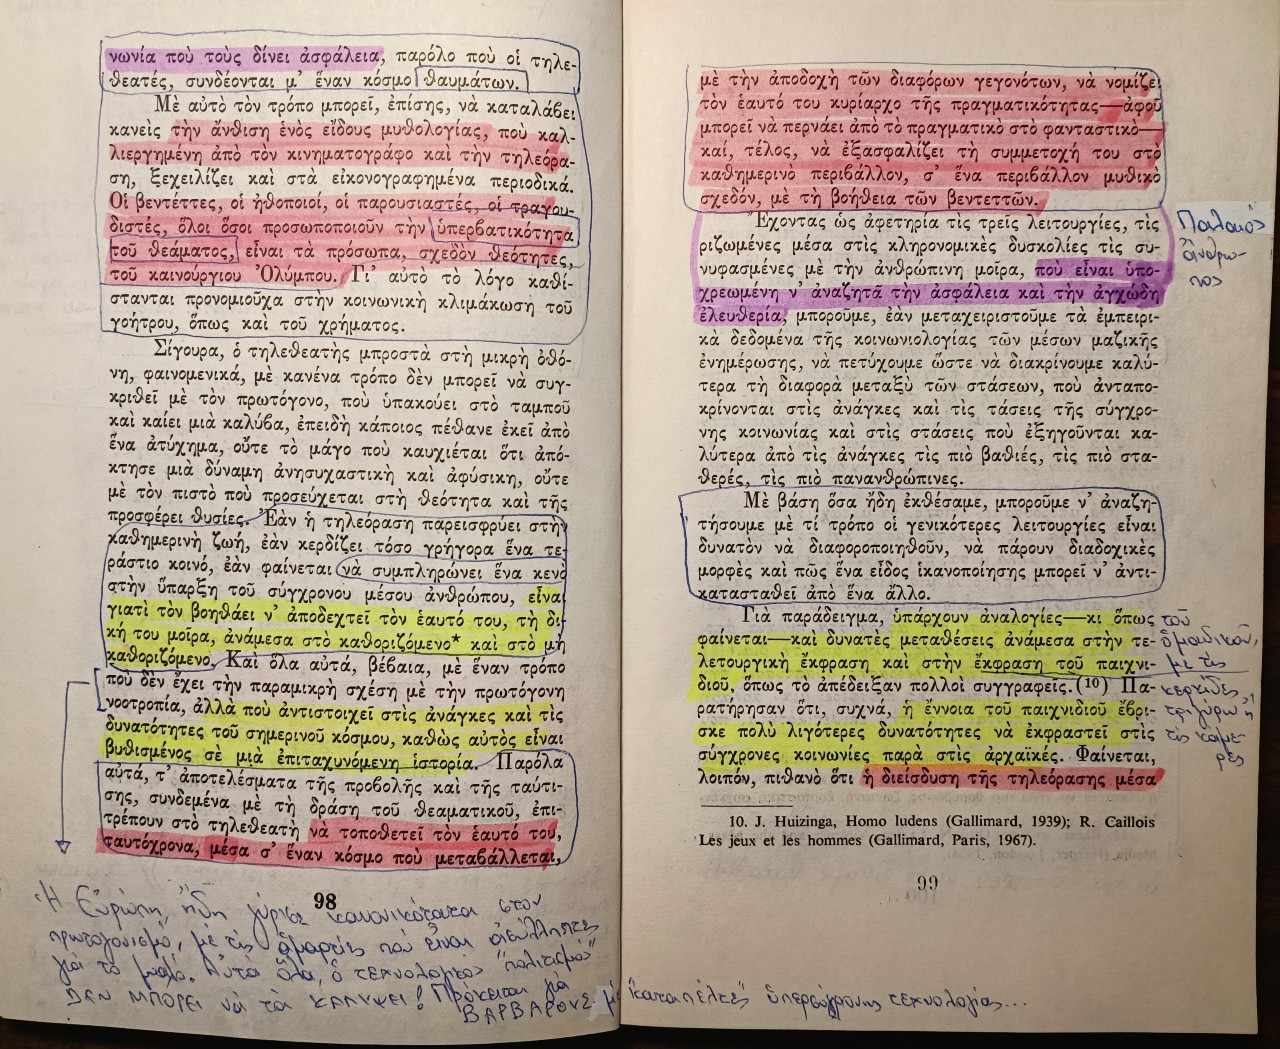 νωνία ποὺ τοὺς δίνει ἀσφάλεια, παρόλο ποὺ οἱ τηλε-
θεατές, συνδέονται μ᾿ ἕναν κόσμο θαυμάτων.
Μὲ αὐτὸ τὸν τρόπο μπορεῖ, ἐπίσης, νὰ καταλάβει
κανεὶς τὴν ἄνθιση ἑνὸς εἴδους μυθολογίας, ποὺ καλ-
λιεργημένη ἀπὸ τὸν κινηματογράφο καὶ τὴν τηλεόρα-
ση, ξεχειλίζει καὶ στὰ εἰκονογραφημένα περιοδικά.
Οἱ βεντέττες, οἱ ἠθοποιοί, οἱ παρουσιαστές, οἱ τραγου-
διστές, ὅλοι ὅσοι προσωποποιοῦν τὴν ὑπερβατικότητα
τοῦ θεάματος, εἶναι τὰ πρόσωπα, σχεδὸν θεότητες,
τοῦ καινούργιου Ὀλύμπου. Γι᾿ αὐτὸ τὸ λόγο καθί-
στανται προνομιοῦχα στὴν κοινωνικὴ κλιμάκωση τοῦ
γοήτρου, ὅπως καὶ τοῦ χρήματος.
Σίγουρα, ὁ τηλεθεατὴς μπροστὰ στὴ μικρὴ ὀθό-
νη, φαινομενικά, μὲ κανένα τρόπο δὲν μπορεῖ νὰ συγ-
κριθεῖ μὲ τὸν πρωτόγονο, ποὺ ὑπακούει στὸ ταμποῦ
καὶ καίει μιὰ καλύβα, ἐπειδὴ κάποιος πέθανε ἐκεῖ ἀπὸ
ἕνα ἀτύχημα, οὔτε τὸ μάγο ποὺ καυχιέται ὅτι ἀπό-
κτησε μιὰ δύναμη ἀνησυχαστικὴ καὶ ἀφύσικη, οὔτε
μὲ τὸν πιστὸ ποὺ προσεύχεται στὴ θεότητα καὶ τῆς
προσφέρει θυσίες. Ἐὰν ἡ τηλεόραση παρεισφρύει στὴν
καθημερινὴ ζωή, ἐὰν κερδίζει τόσο γρήγορα ἕνα τε-
ράστιο κοινό, ἐὰν φαίνεται νὰ συμπληρώνει ἕνα κενὸ
στὴν ὕπαρξη τοῦ σύγχρονου μέσου ἀνθρώπου, εἶναι
γιατὶ τὸν βοηθάει ν᾿ ἀποδεχτεῖ τὸν ἑαυτό του, τὴ δι-
κή του μοῖρα, ἀνάμεσα στὸ καθοριζόμενο* καὶ στὸ μὴ
καθοριζόμενο. Καὶ ὅλα αὐτά, βέβαια, μὲ ἕναν τρόπο
ποὺ δὲν ἔχει τὴν παραμικρὴ σχέση μὲ τὴν πρωτόγονη
νοοτροπία, ἀλλὰ ποὺ ἀντιστοιχεῖ στὶς ἀνάγκες καὶ τὶς
δυνατότητες τοῦ σημερινοῦ κόσμου, καθὼς αὐτὸς εἶναι
βυθισμένος σὲ μιὰ ἐπιταχυνόμενη ἱστορία. Παρόλα
αὐτά, τ᾿ ἀποτελέσματα τῆς προβολῆς καὶ τῆς ταύτι-
σης, συνδεμένα μὲ τὴ δράση τοῦ θεαματικοῦ, ἐπι-
τρέπουν στὸ τηλεθεατὴ νὰ τοποθετεῖ τὸν ἑαυτό του,
ταυτόχρονα, μέσα σ᾿ ἕναν κόσμο ποὺ μεταβάλλεται,
98
Ἡ Εὐρώπη, ἤδη γύρισε κανονικότατα στον
πρωτογονισμό, μὲ τὶς ἁμαρτίες ποὺ εἶναι ἀσύλληπτες
γιὰ τὸ μυαλό. Αὐτὰ ὅλα, ὁ τεχνολογικὸς "πολιτισμὸς"
ΔΕΝ ΜΠΟΡΕΙ νὰ τὰ ΚΑΛΥΨΕΙ! Πρόκειται γιὰ
ΒΑΡΒΑΡΟΥΣ μὲ "καταπέλτες" ὑπερσύγχρονης τεχνολογίας...
μὲ τὴν ἀποδοχὴ τῶν διαφόρων γεγονότων, νὰ νομίζει
τὸν ἑαυτό του κυρίαρχο τῆς πραγματικότητας—ἀφοῦ
μπορεῖ νὰ περνάει ἀπὸ τὸ πραγματικὸ στὸ φανταστικὸ—
καί, τέλος, νὰ ἐξασφαλίζει τὴ συμμετοχή του στὸ
καθημερινὸ περιβάλλον, σ᾿ ἕνα περιβάλλον μυθικὸ
σχεδόν, μὲ τὴ βοήθεια τῶν βεντεττῶν.
Ἔχοντας ὡς ἀφετηρία τὶς τρεῖς λειτουργίες, τὶς
ριζωμένες μέσα στὶς κληρονομικὲς δυσκολίες τὶς συ-
νυφασμένες μὲ τὴν ἀνθρώπινη μοῖρα, ποὺ εἶναι ὑπο-
χρεωμένη ν᾿ ἀναζητᾶ τὴν ἀσφάλεια καὶ τὴν ἀγχώδη
ἐλευθερία, μποροῦμε, ἐὰν μεταχειριστοῦμε τὰ ἐμπειρι-
κὰ δεδομένα τῆς κοινωνιολογίας τῶν μέσων μαζικῆς
ἐνημέρωσης, νὰ πετύχουμε ὥστε νὰ διακρίνουμε καλύ-
τερα τὴ διαφορὰ μεταξὺ τῶν στάσεων, ποὺ ἀνταπο-
κρίνονται στὶς ἀνάγκες καὶ τὶς τάσεις τῆς σύγχρο-
νης κοινωνίας καὶ στὶς στάσεις ποὺ ἐξηγοῦνται κα-
λύτερα ἀπὸ τὶς ἀνάγκες τὶς πιὸ βαθιές, τὶς πιὸ στα-
θερές, τὶς πιὸ πανανθρώπινες.
Μὲ βάση ὅσα ἤδη ἐκθέσαμε, μποροῦμε ν᾿ ἀναζη-
τήσουμε μὲ τί τρόπο οἱ γενικότερες λειτουργίες εἶναι
δυνατὸν νὰ διαφοροποιηθοῦν, νὰ πάρουν διαδοχικὲς
μορφὲς καὶ πῶς ἕνα εἶδος ἱκανοποίησης μπορεῖ ν᾿ ἀντι-
κατασταθεῖ ἀπὸ ἕνα ἄλλο.
Γιὰ παράδειγμα, ὑπάρχουν ἀναλογίες—κι ὅπως
φαίνεται—καὶ δυνατὲς μεταθέσεις ἀνάμεσα στὴν τε-
λετουργικὴ ἔκφραση καὶ στὴν ἔκφραση τοῦ παιχνι-
διοῦ, ὅπως τὸ ἀπέδειξαν πολλοὶ συγγραφεῖς.(10) Πα-
ρατήρησαν ὅτι, συχνά, ἡ ἔννοια τοῦ παιχνιδιοῦ ἔβρι-
σκε πολὺ λιγότερες δυνατότητες νὰ ἐκφραστεῖ στὶς
σύγχρονες κοινωνίες παρὰ στὶς ἀρχαϊκές. Φαίνεται,
λοιπόν, πιθανὸ ὅτι ἡ διείσδυση τῆς τηλεόρασης μέσα
10. J. Huizinga, Homo ludens (Gallimard, 1939); R. Caillois
Les jeux et les hommes (Gallimard, Paris, 1967).
99
Παλαιὸς
ἄνθρω-
πος
τοῦ
ὁμαδικοῦ,
μὲ τὶς
κερκίδες
τριγύρω ἢ
τὶς κάμε-
ρες